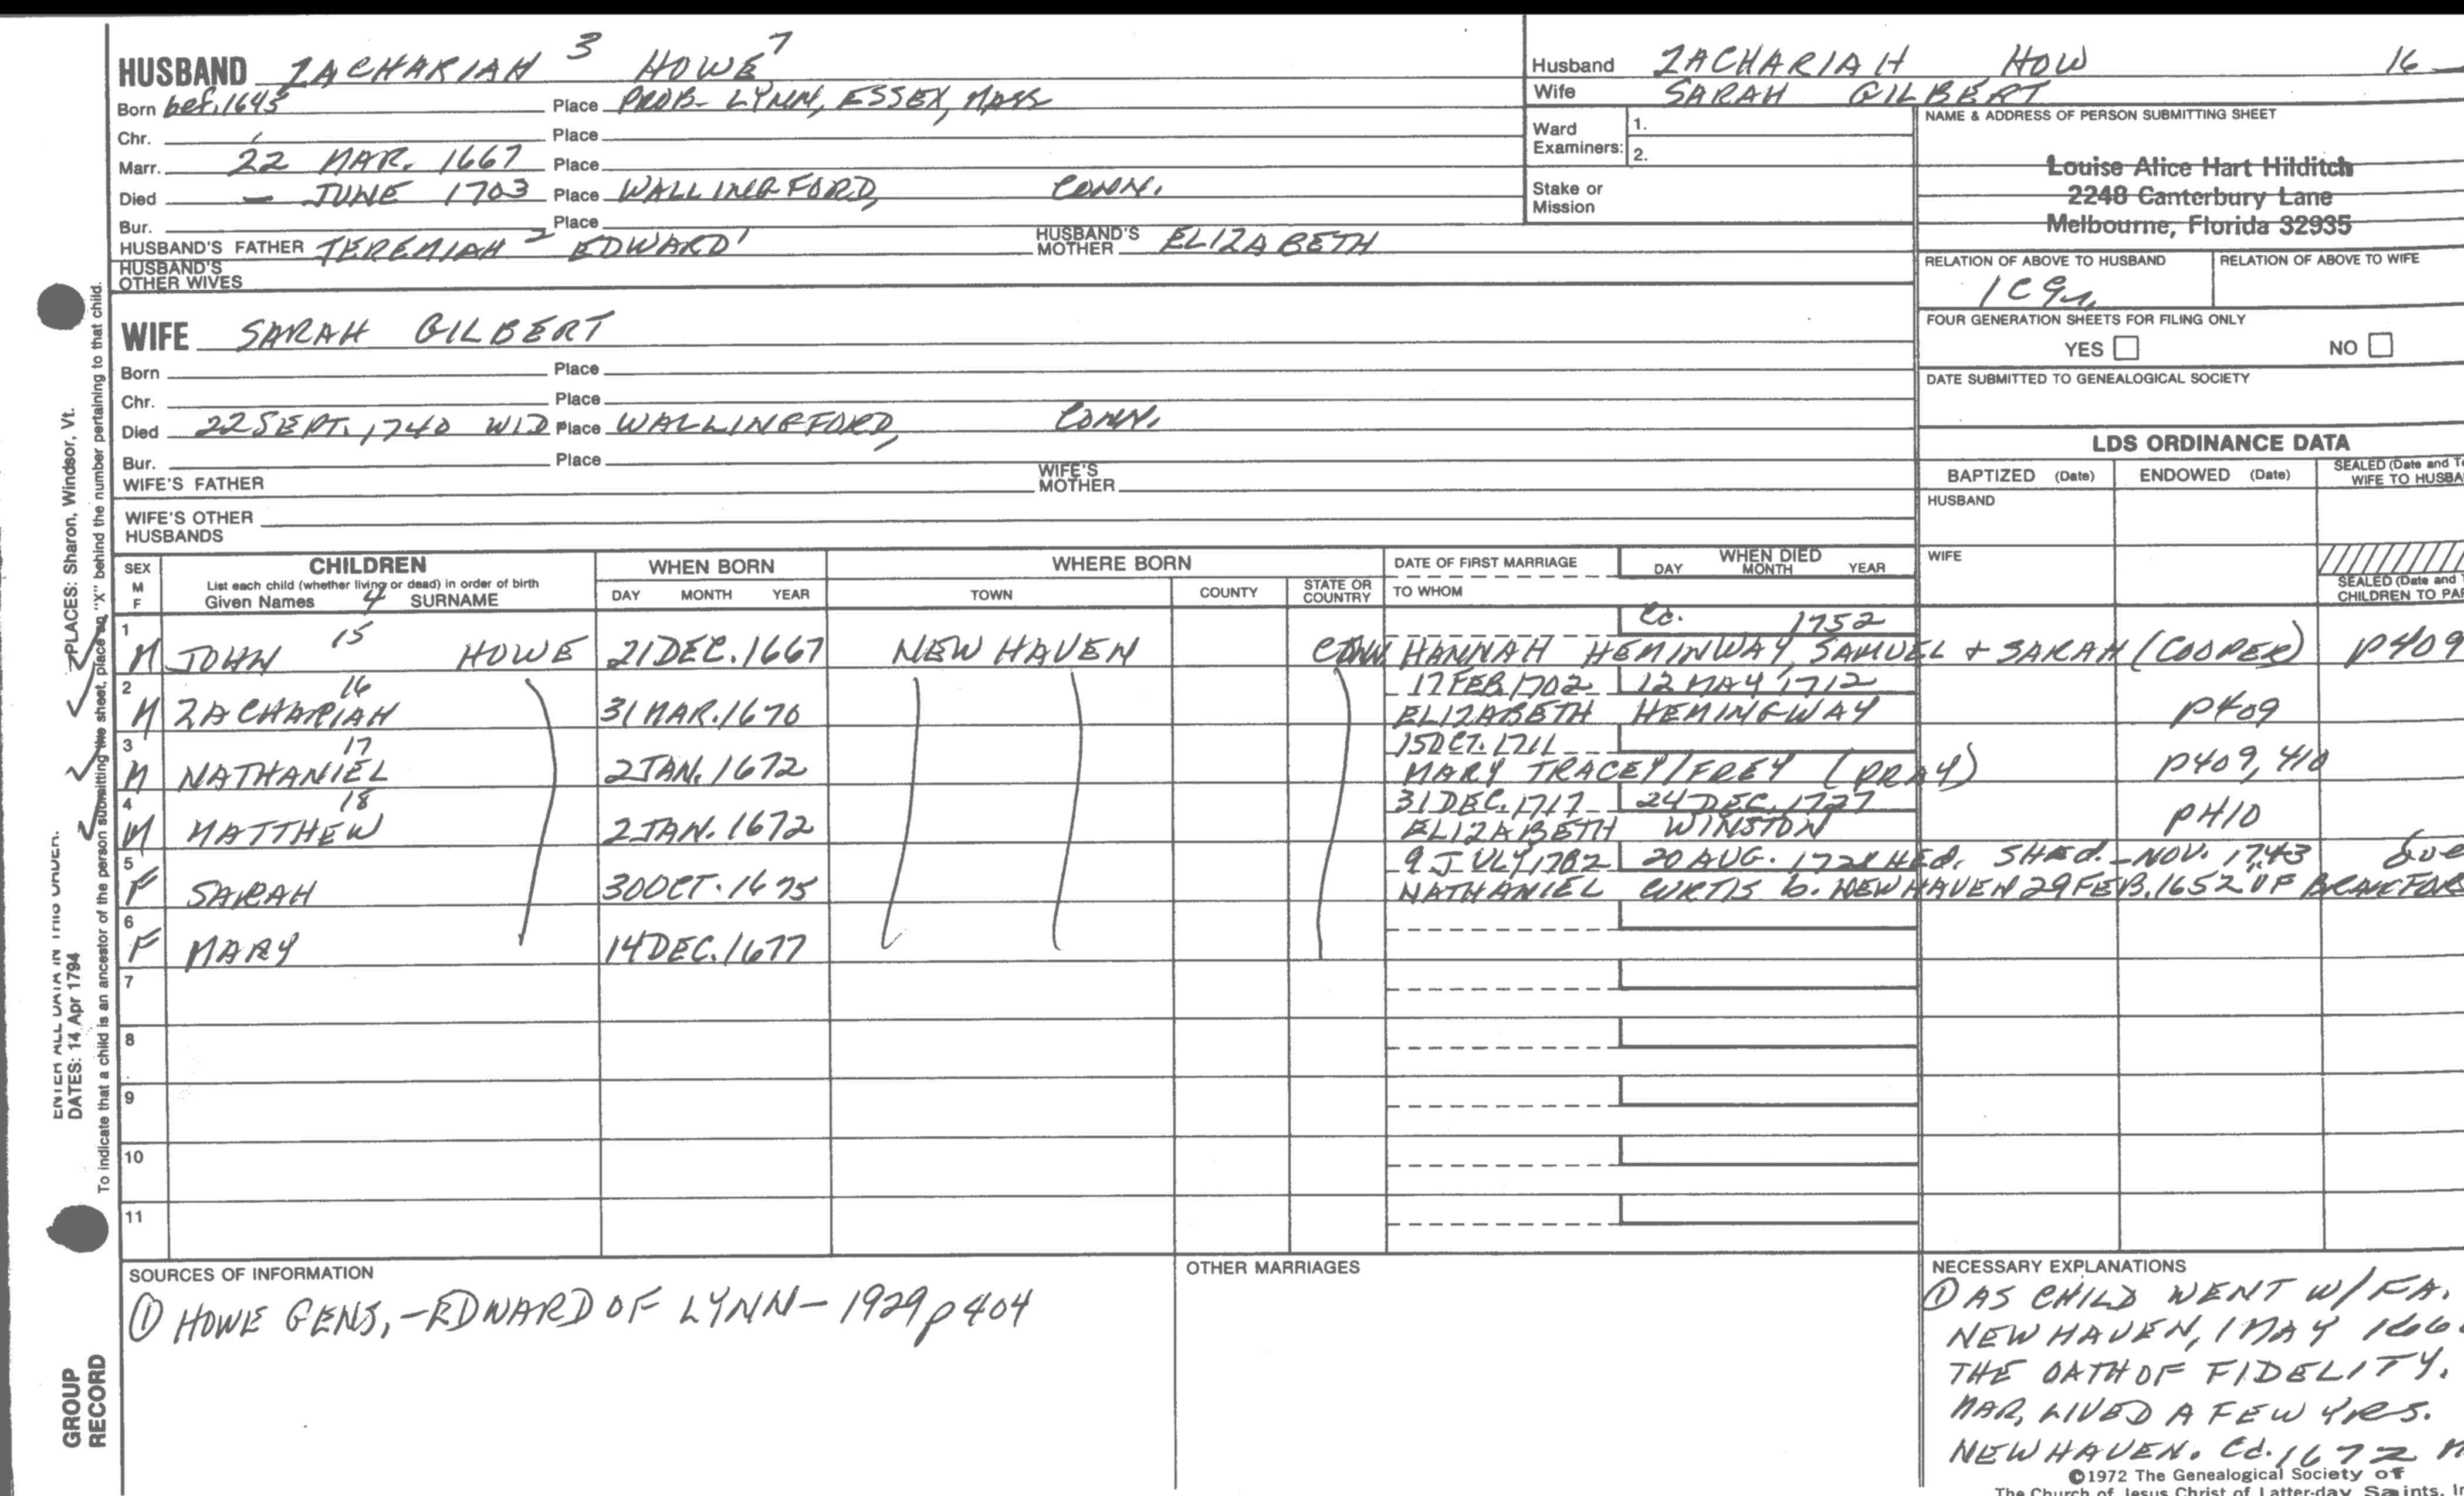 HUSBAND ZACHARIAH 3 HOWE 7
Born bef. 1645 Place PROB- LYNN, ESSEX, MASS
Chr. Place
Marr. 22 MAR. 1667 Place
Died — JUNE 1703 Place WALLINGFORD, CONN.
Bur. Place
HUSBAND'S FATHER JEREMIAH 2 EDWARD 1 HUSBAND'S MOTHER ELIZABETH
HUSBAND'S OTHER WIVES
Husband ZACHARIAH HOW 16
Wife SARAH GILBERT
Ward Examiners: 1. 2.
Stake or Mission
NAME & ADDRESS OF PERSON SUBMITTING SHEET
Louise Alice Hart Hilditch
2248 Canterbury Lane
Melbourne, Florida 32935
RELATION OF ABOVE TO HUSBAND RELATION OF ABOVE TO WIFE
FOUR GENERATION SHEETS FOR FILING ONLY
YES NO
DATE SUBMITTED TO GENEALOGICAL SOCIETY
WIFE SARAH GILBERT
Born Place
Chr. Place
Died 22 SEPT. 1740 WID Place WALLINGFORD, CONN.
Bur. Place
WIFE'S FATHER WIFE'S MOTHER
WIFE'S OTHER HUSBANDS
LDS ORDINANCE DATA
BAPTIZED (Date) ENDOWED (Date) SEALED (Date and
WIFE TO
HUSBAND
WIFE
SEALED (Date and
CHILDREN TO
SEX M F CHILDREN WHEN BORN WHERE BORN DATE OF FIRST MARRIAGE WHEN DIED
List each child (whether living or dead) in order of birth
Given Names 4 SURNAME DAY MONTH YEAR TOWN COUNTY STATE OR COUNTRY TO WHOM DAY MONTH YEAR
1 15 1752
M JOHN HOWE 21 DEC. 1667 NEW HAVEN CONN HANNAH HEMINWAY, SAMUEL + SARAH (COOPER) P409
2 16 17 FEB 1702 12 MAY 1712
M ZACHARIAH 31 MAR. 1670 ELIZABETH HEMINGWAY P409
3 17 15 OCT. 1711
M NATHANIEL 2 JAN. 1672 MARY TRACEY/FREY (PRAY) P409, 410
4 18 31 DEC. 1717 24 DEC. 1727
M MATTHEW 2 JAN. 1672 ELIZABETH WINSTON P410
5 9 JULY 20 AUG. NOV. 1743
F SARAH 30 OCT. 1675 NATHANIEL CURTIS b. NEW HAVEN 29 FEB. 1652 OF
6
F MARY 14 DEC. 1677
7
8
9
10
11
SOURCES OF INFORMATION
① HOWE GENS, - EDWARD OF LYNN - 1929 p 404
OTHER MARRIAGES
NECESSARY EXPLANATIONS
① AS CHILD WENT W/ FA.
NEW HAVEN, 1 MAY
THE OATH OF FIDELITY.
MAR, LIVED A FEW YRS.
NEW HAVEN. Cd. 1672
©1972 The Genealogical Society of
The Church of Jesus Christ of Latter-day Saints,
PLACES: Sharon, Windsor, Vt.
ENTER ALL DATA IN THIS ORDER:
DATES: 14 Apr 1794
To indicate that a child is an ancestor of the person submitting the sheet, place an "X" behind the number pertaining to that child.
GROUP
RECORD